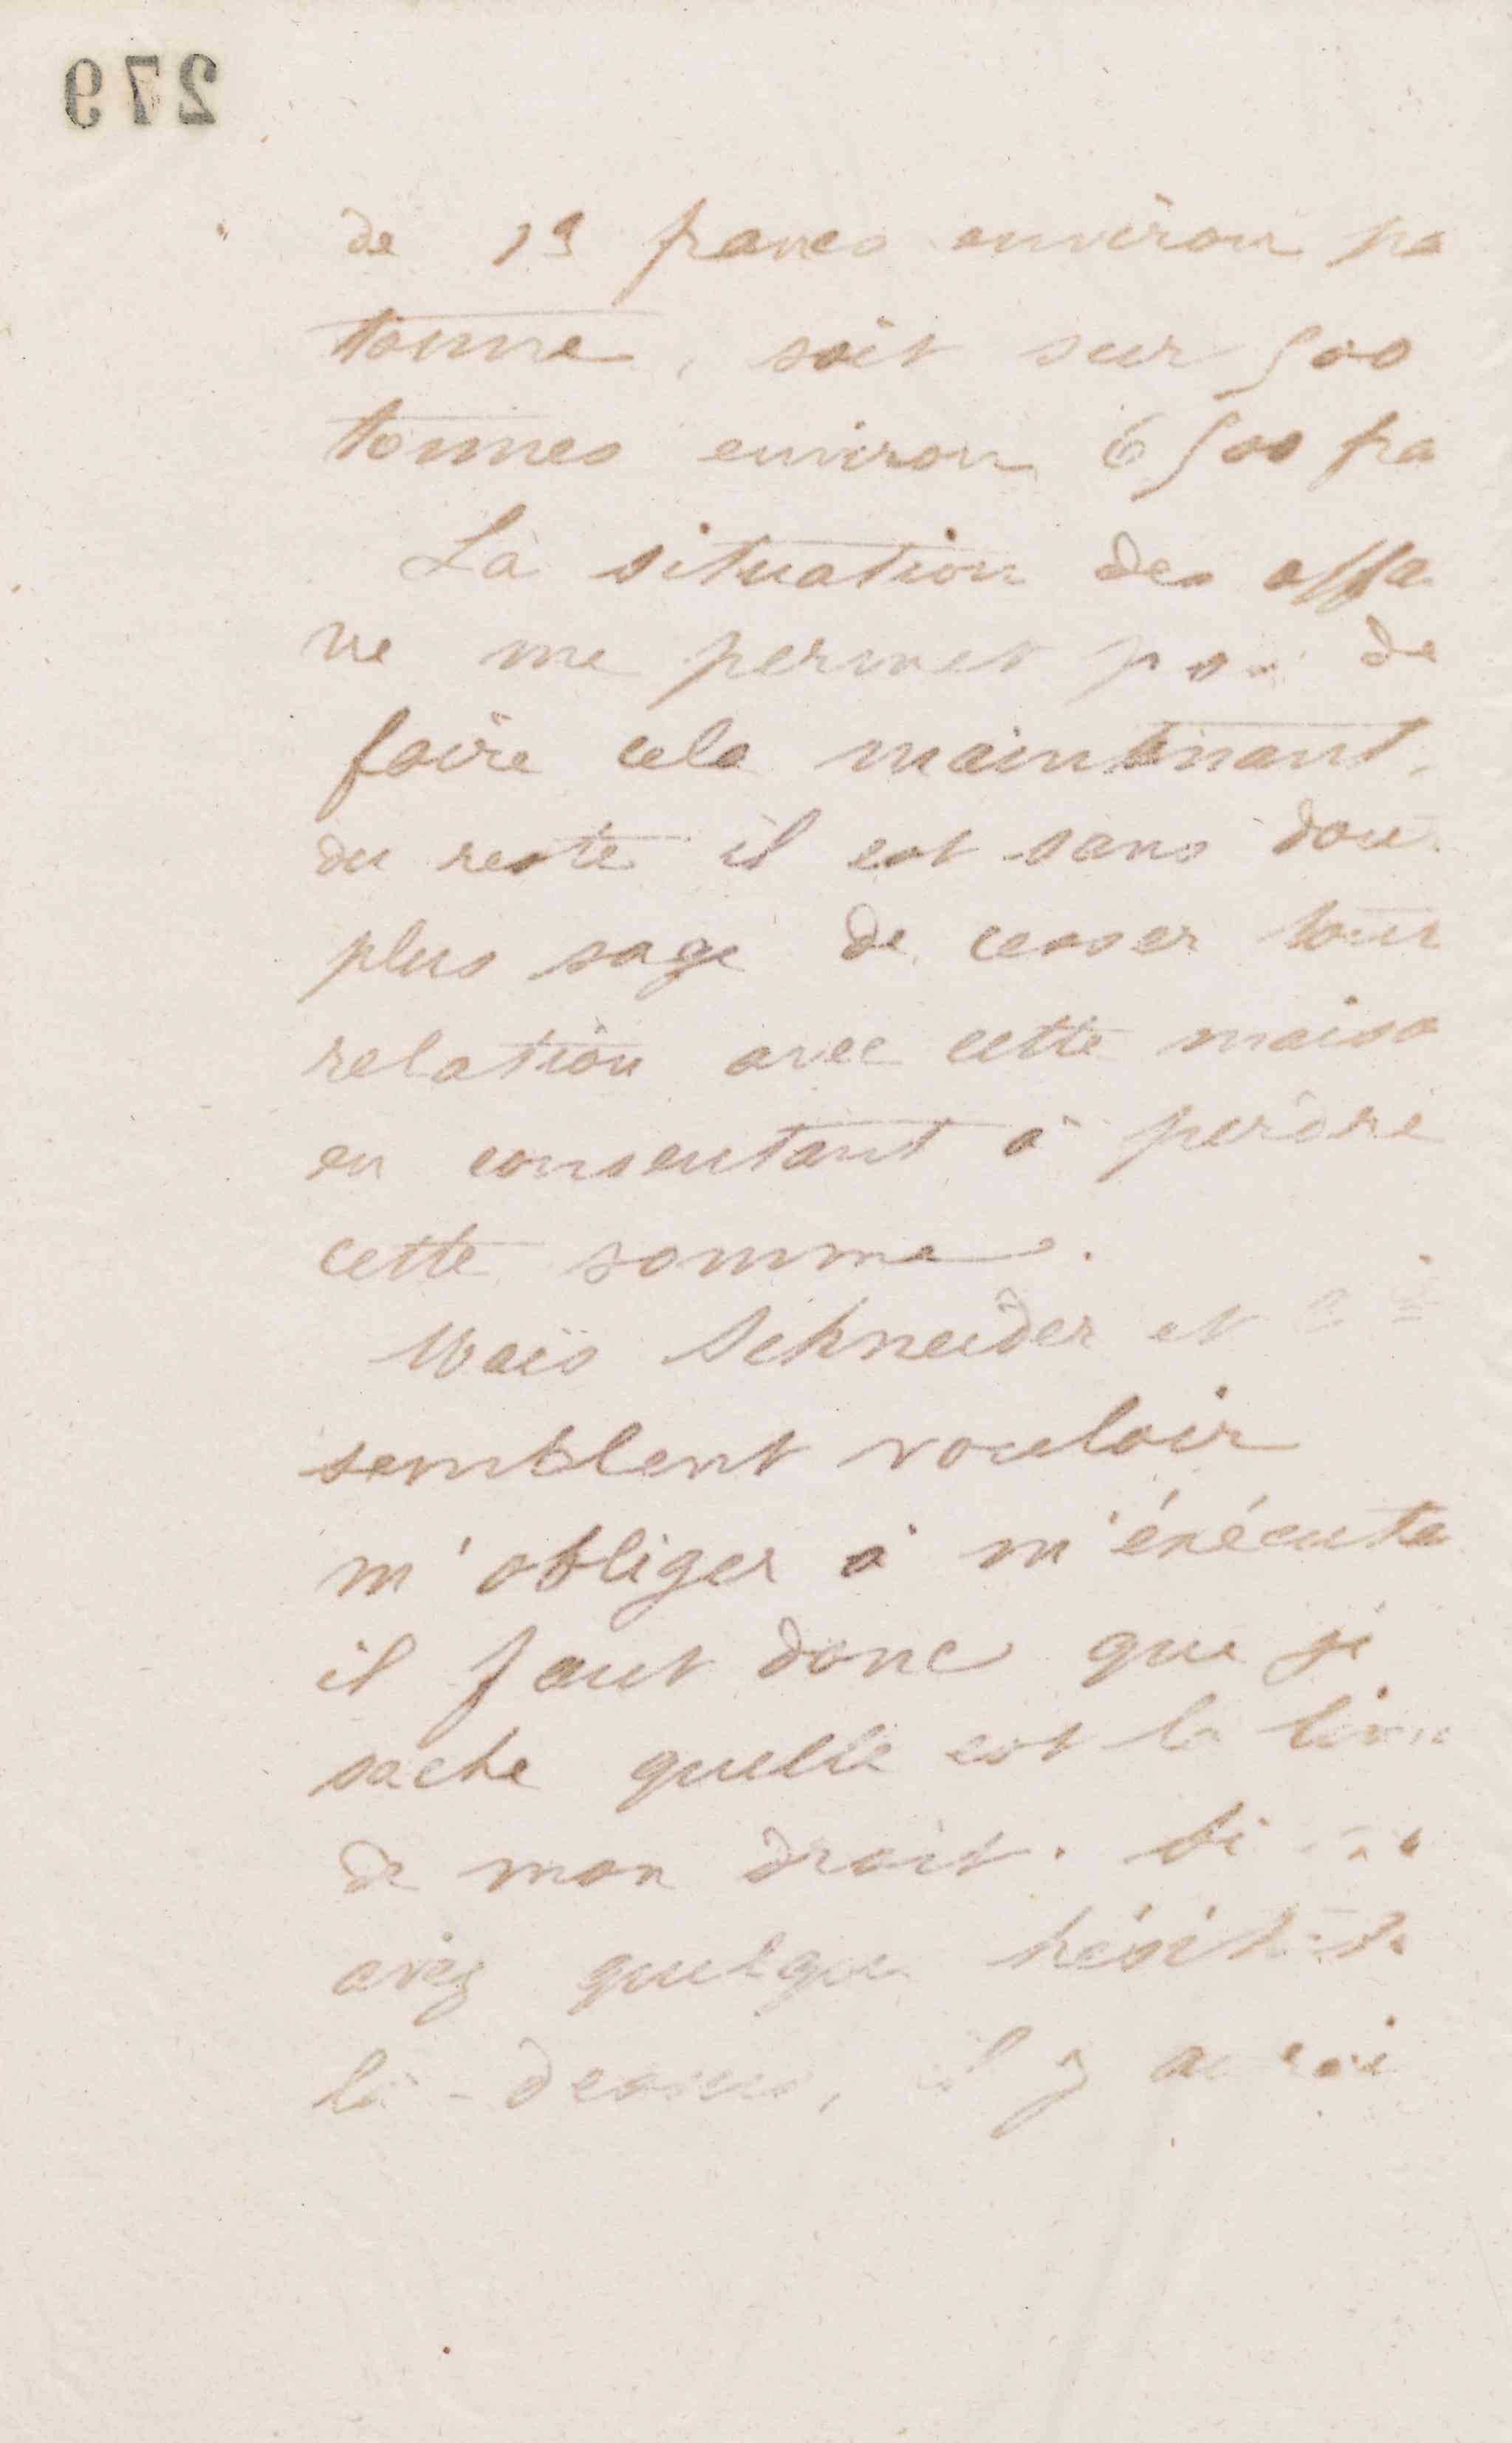 279
de 13 francs environ pa
tonne, soit sur 500
tonnes environ 6500 fra
La situation des affa
ne me permet pas de
faire cela maintenant,
du reste il est sans dou
plus sage de cesser tou
relation avec cette maiso
en consentant à perdre
cette somme.
Mais Schneider et
semblent vouloir
m'obliger à m'exécute
il faut donc que je
sache quelle est la
de mon droit. Si
avez quelque
là-dessus, il y aurai